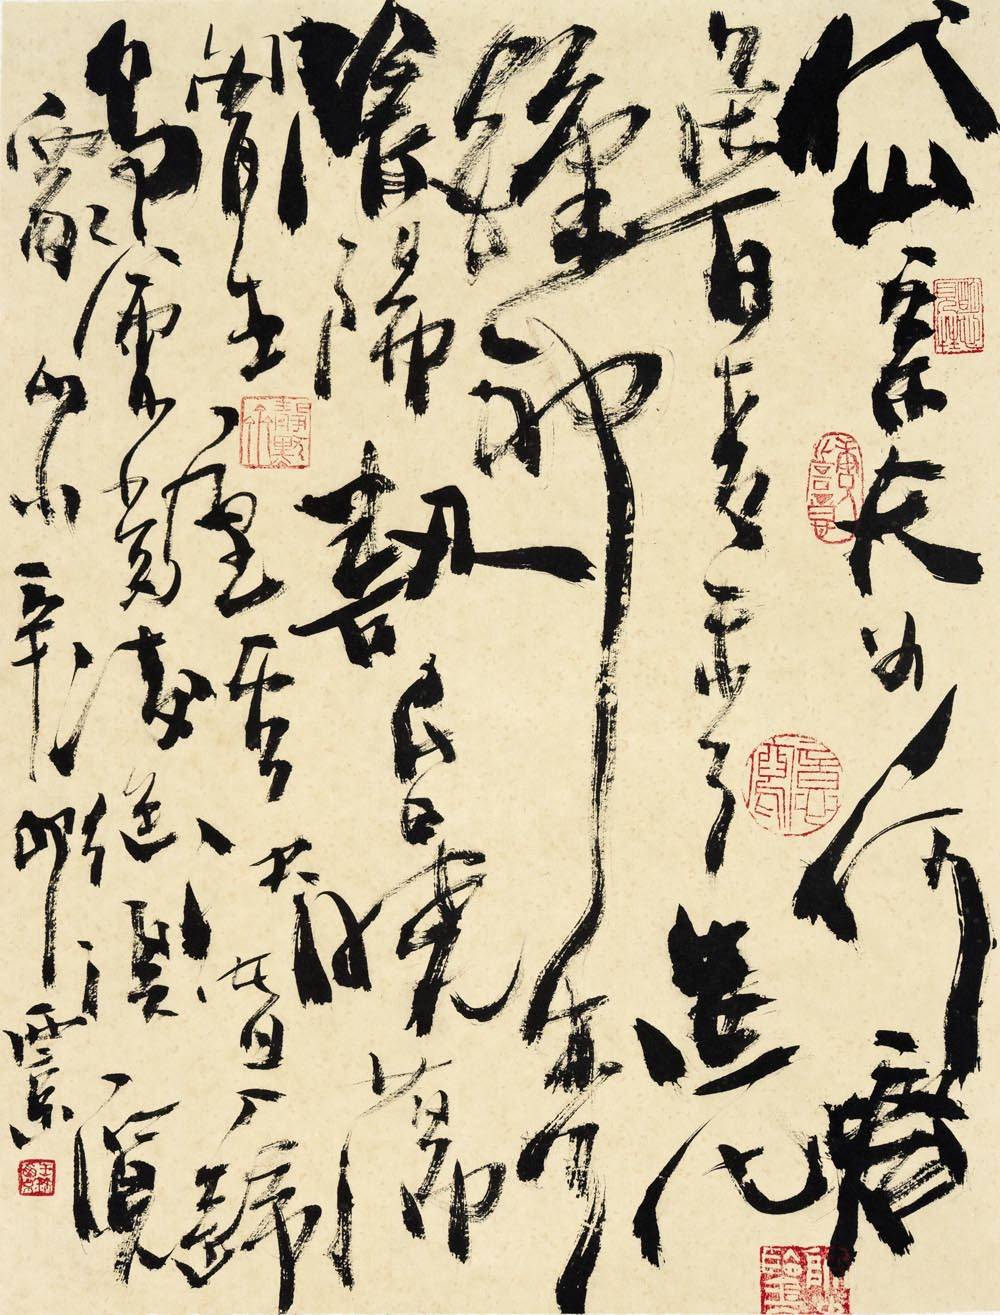 岱宗夫如何齊
魯青未了造化
鍾神秀
陰陽割昏曉蕩
胸生層雲決眥入歸
鳥會當凌絕頂一覽
眾山小 辛卯